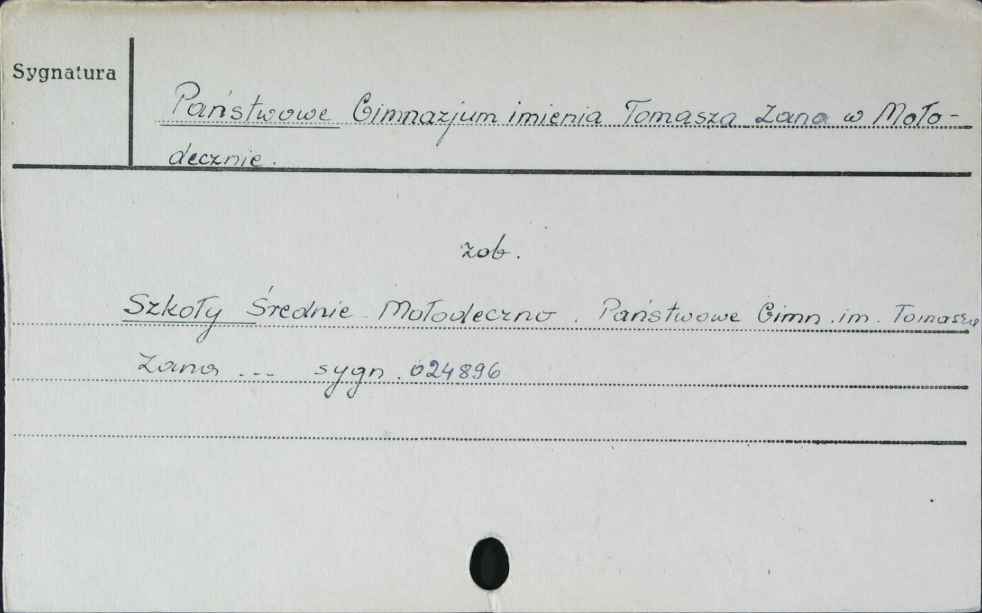 Sygnatura
Państwowe Gimnazjum imienia Tomasza Zana w Moło-
decznie.
zob.
Szkoły Średnie Mołodeczno. Państwowe Gimn. im. Tomasza
Zana --- sygn. 024896